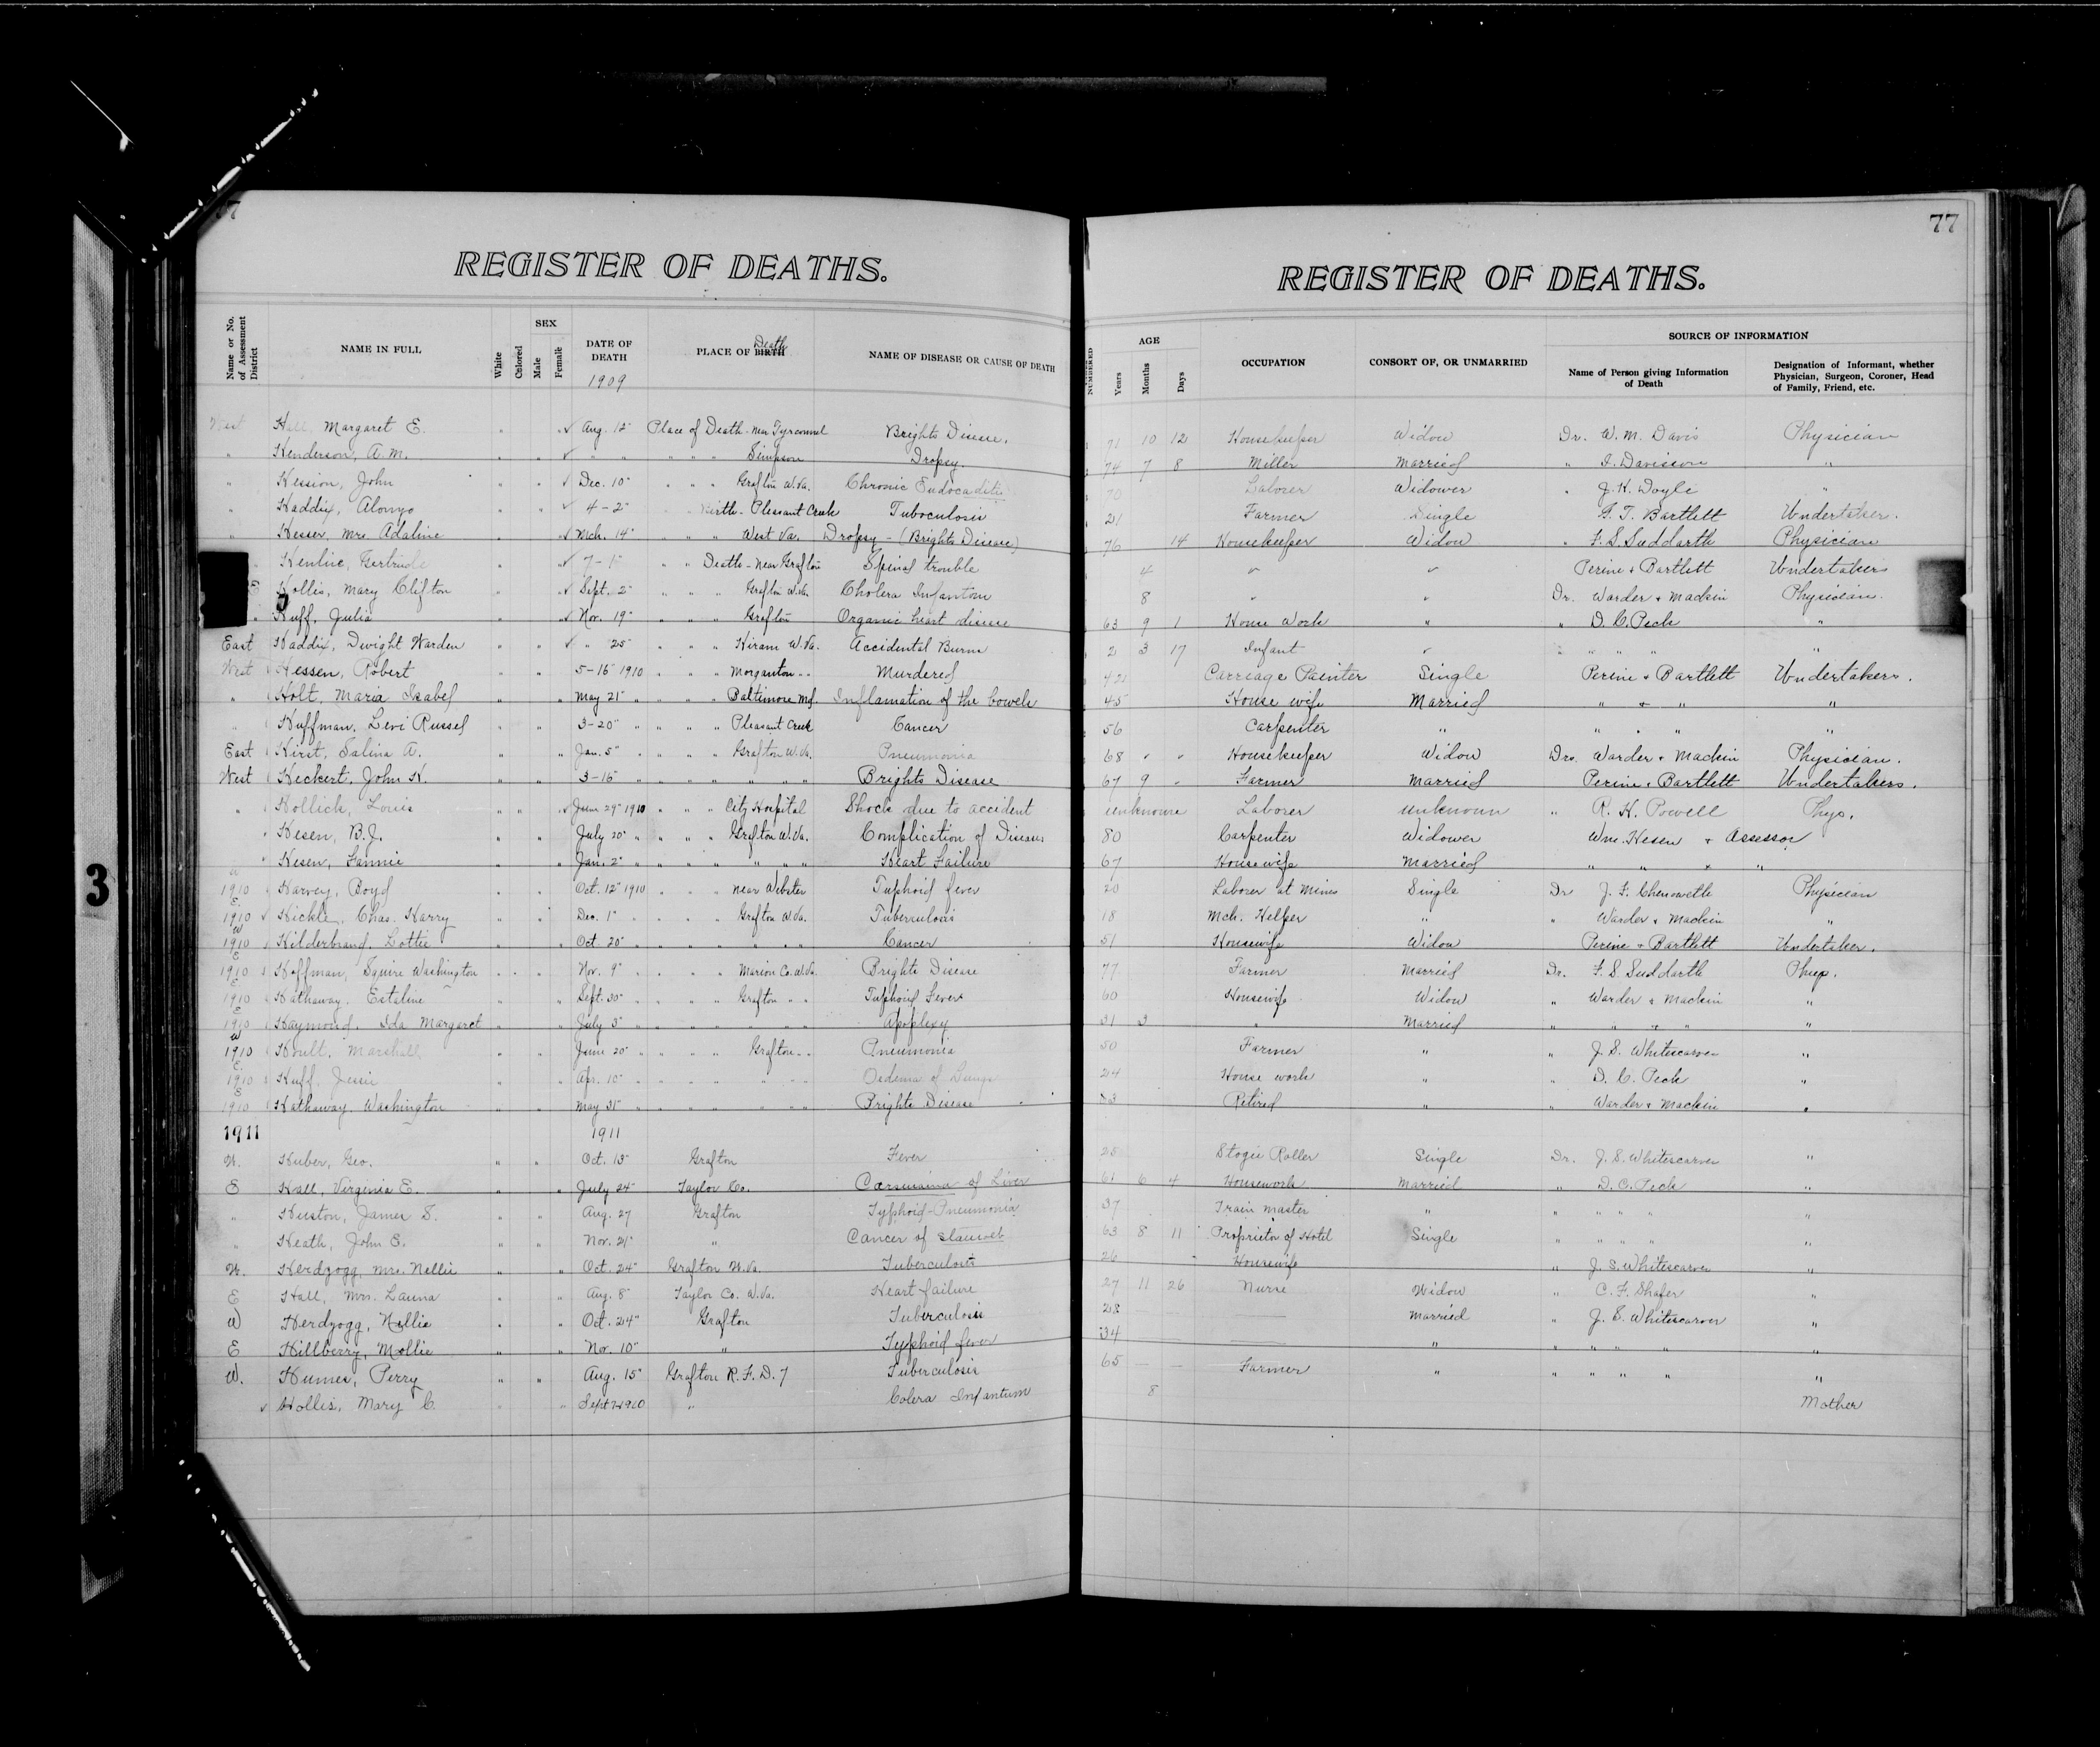 77
REGISTER OF DEATHS.
REGISTER OF DEATHS.
Name or No. of Assessment District NAME IN FULL White Colored SEX Male Female DATE OF DEATH 1909 PLACE OF BIRTH Death NAME OF DISEASE OR CAUSE OF DEATH NUMBERED AGE Years Months Days OCCUPATION CONSORT OF, OR UNMARRIED SOURCE OF INFORMATION Name of Person giving Information of Death Designation of Informant, whether Physician, Surgeon, Coroner, Head of Family, Friend, etc.
West Hall, Margaret E. " " ✓ Aug. 12" Place of Death - Near Tyrconnel Brights Disease. 71 10 12 Housekeeper Widow Dr. W. M. Davis Physician
" Henderson, A. M. " " ✓ " " " " " Simpson Dropsy. 74 7 8 Miller Married " Davisson "
" Hession, John " " ✓ Dec. 10" " " " Grafton W. Va. Chronic Endocaditis 70 Laborer Widower " J. H. Doyle "
" Haddix, Alonzo " " ✓ 4-2" " " Birth - Pleasant Creek Tuboculosis 21 Farmer Single " T. Bartlett Undertaker.
" Hesser, Mrs Adaline " " ✓ Mch. 14" " " " West Va. Dropsy - (Brights Disease) 76 14 Housekeeper Widow " F. S. Suddarth Physician
" Gertrude " " ✓ 7-1" " " Death - near Grafton Spinal trouble 4 " " Perine + Bartlett Undertakers
Hollis, Mary Clifton " " ✓ Sept. 2" " " " Grafton W. Va. Cholera Infantum 8 " " Dr. Warder + Mackin Physician.
" Huff, Julia " " ✓ Nov. 19" " " " Grafton Organic heart disease 63 9 1 House Work " " D. C. Peck "
East Haddix, Dwight Warden " " ✓ " 25" " " " Hiram W. Va. Accidental Burns 2 3 17 Infant " " " " "
West Hessen, Robert " " 5-16" 1910 " " " Morganton " " Murdered 42 Carriage Painter Single Perine + Bartlett Undertakers.
" Holt, Maria Isabel " " May 21" " " " " Baltimore Md. Inflamation of the bowels 45 House wife Married " + " "
" Huffman, Levi Russel " " 3-20" " " " " Pleasant Creek Cancer 56 Carpenter " " " " "
East Hirst, Salina A. " " Jan. 5" " " " " Grafton W. Va. Pneumonia 68 " " Housekeeper Widow Drs. Warder + Mackin Physician.
West Heckert, John H. " " 3-16" " " " " " " " Brights Disease 67 9 " Farmer Married Perine + Bartlett Undertakers.
" Hollich, Louis " " ✓ June 29" 1910 " " " City Hospital Shock due to accident unknown Laborer unknown " R. H. Powell Phys.
" Hesen, B. J. " " July 20" " " " " Grafton W. Va. Complication of Diseases 80 Carpenter Widower Wm. Hesen + Assessor
" Hesen, Fannie " " Jan. 2" " " " " " " " Heart Failure 67 Housewife Married " " + "
W 1910 Harvey, Boyd " " Oct. 12" 1910 " " " near Webster Typhoid fever 20 Laborer at Mines Single Dr J. F. Chenoweth Physician
E 1910 Hickle, Chas. Harry " " Dec. 1" " " " " Grafton W. Va. Tuberculosis 18 Mch. Helper " " Warder + Mackin "
W 1910 Hilderbrand, Lottie " " Oct. 20" " " " " " " " Cancer 51 Housewife Widow Perine + Bartlett Undertaker.
E 1910 Hoffman, Squire Washington " " Nov. 9" " " " " Marion Co. W. Va. Brights Disease 77 Farmer Married Dr. F. S. Suddarth Phys.
E 1910 Hathaway, Estaline " " Sept. 30" " " " " Grafton " " Typhoid Fever 60 Housewife Widow " Warder + Mackin "
E 1910 Haymond, Ida Margaret " " July 3" " " " " " " " Apoplexy 31 3 " Married " " " " "
W 1910 Hoult, Marshall " " June 20" " " " " Grafton " " Pneumonia 50 Farmer " " J. S. Whitescarver "
E 1910 Huff, Jessie " " Apr. 10" " " " " " " " Oedema of Lungs 24 House work " " D. C. Peck "
E 1910 Hathaway, Washington " " May 31" " " " " " " " Brights Disease 83 Retired " " Warder + Mackin "
1911 1911
W. Huber, Geo. " " Oct. 13" Grafton Fever 25 Stogie Roller Single Dr. J. S. Whitescarver "
E Hall, Virginia E. " " July 24" Taylor Co. Carsinoma of Liver 61 6 4 Housework Married " D. C. Peck "
" Huston, James S. " " Aug. 27 Grafton Typhoid-Pneumonia 37 Train master " " " " " "
" Heath, John E. " " Nov. 21" " Cancer of stomach 63 8 11 Proprietor of Hotel Single " " " " "
W. Herdzogg, Mrs. Nellie " " Oct. 24" Grafton W. Va. Tuberculosis 26 Housewife " J. S. Whitescarver "
E Hall, Mrs. Launa " " Aug. 8" Taylor Co. W. Va. Heart failure 27 11 26 Nurse Widow " C. F. Shafer "
W Herdzogg, Nellie " " Oct. 24" Grafton Tuberculosis 28 Married " J. S. Whitescarver "
E Hillberry, Mollie " " Nov. 10" " Typhoid fever 34 " " " " " "
W. Humes, Perry " " Aug. 15" Grafton R. F. D. 7 Tuberculosis 65 — — Farmer " " " " " "
✓ Hollis, Mary C. " " Sept 2 1910 " Colera Infantum 8 Mother
3